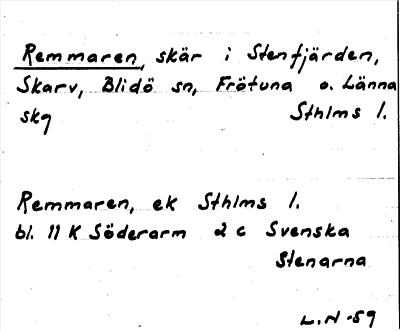 Remmaren, skär i Stenfjärden,
Skarv, Blidö sn, Frötuna o. Länna
skg Sthlms l.
Remmaren, ek Sthlms l.
bl. 11 K Söderarm 2 c Svenska
Stenarna
L.N -59